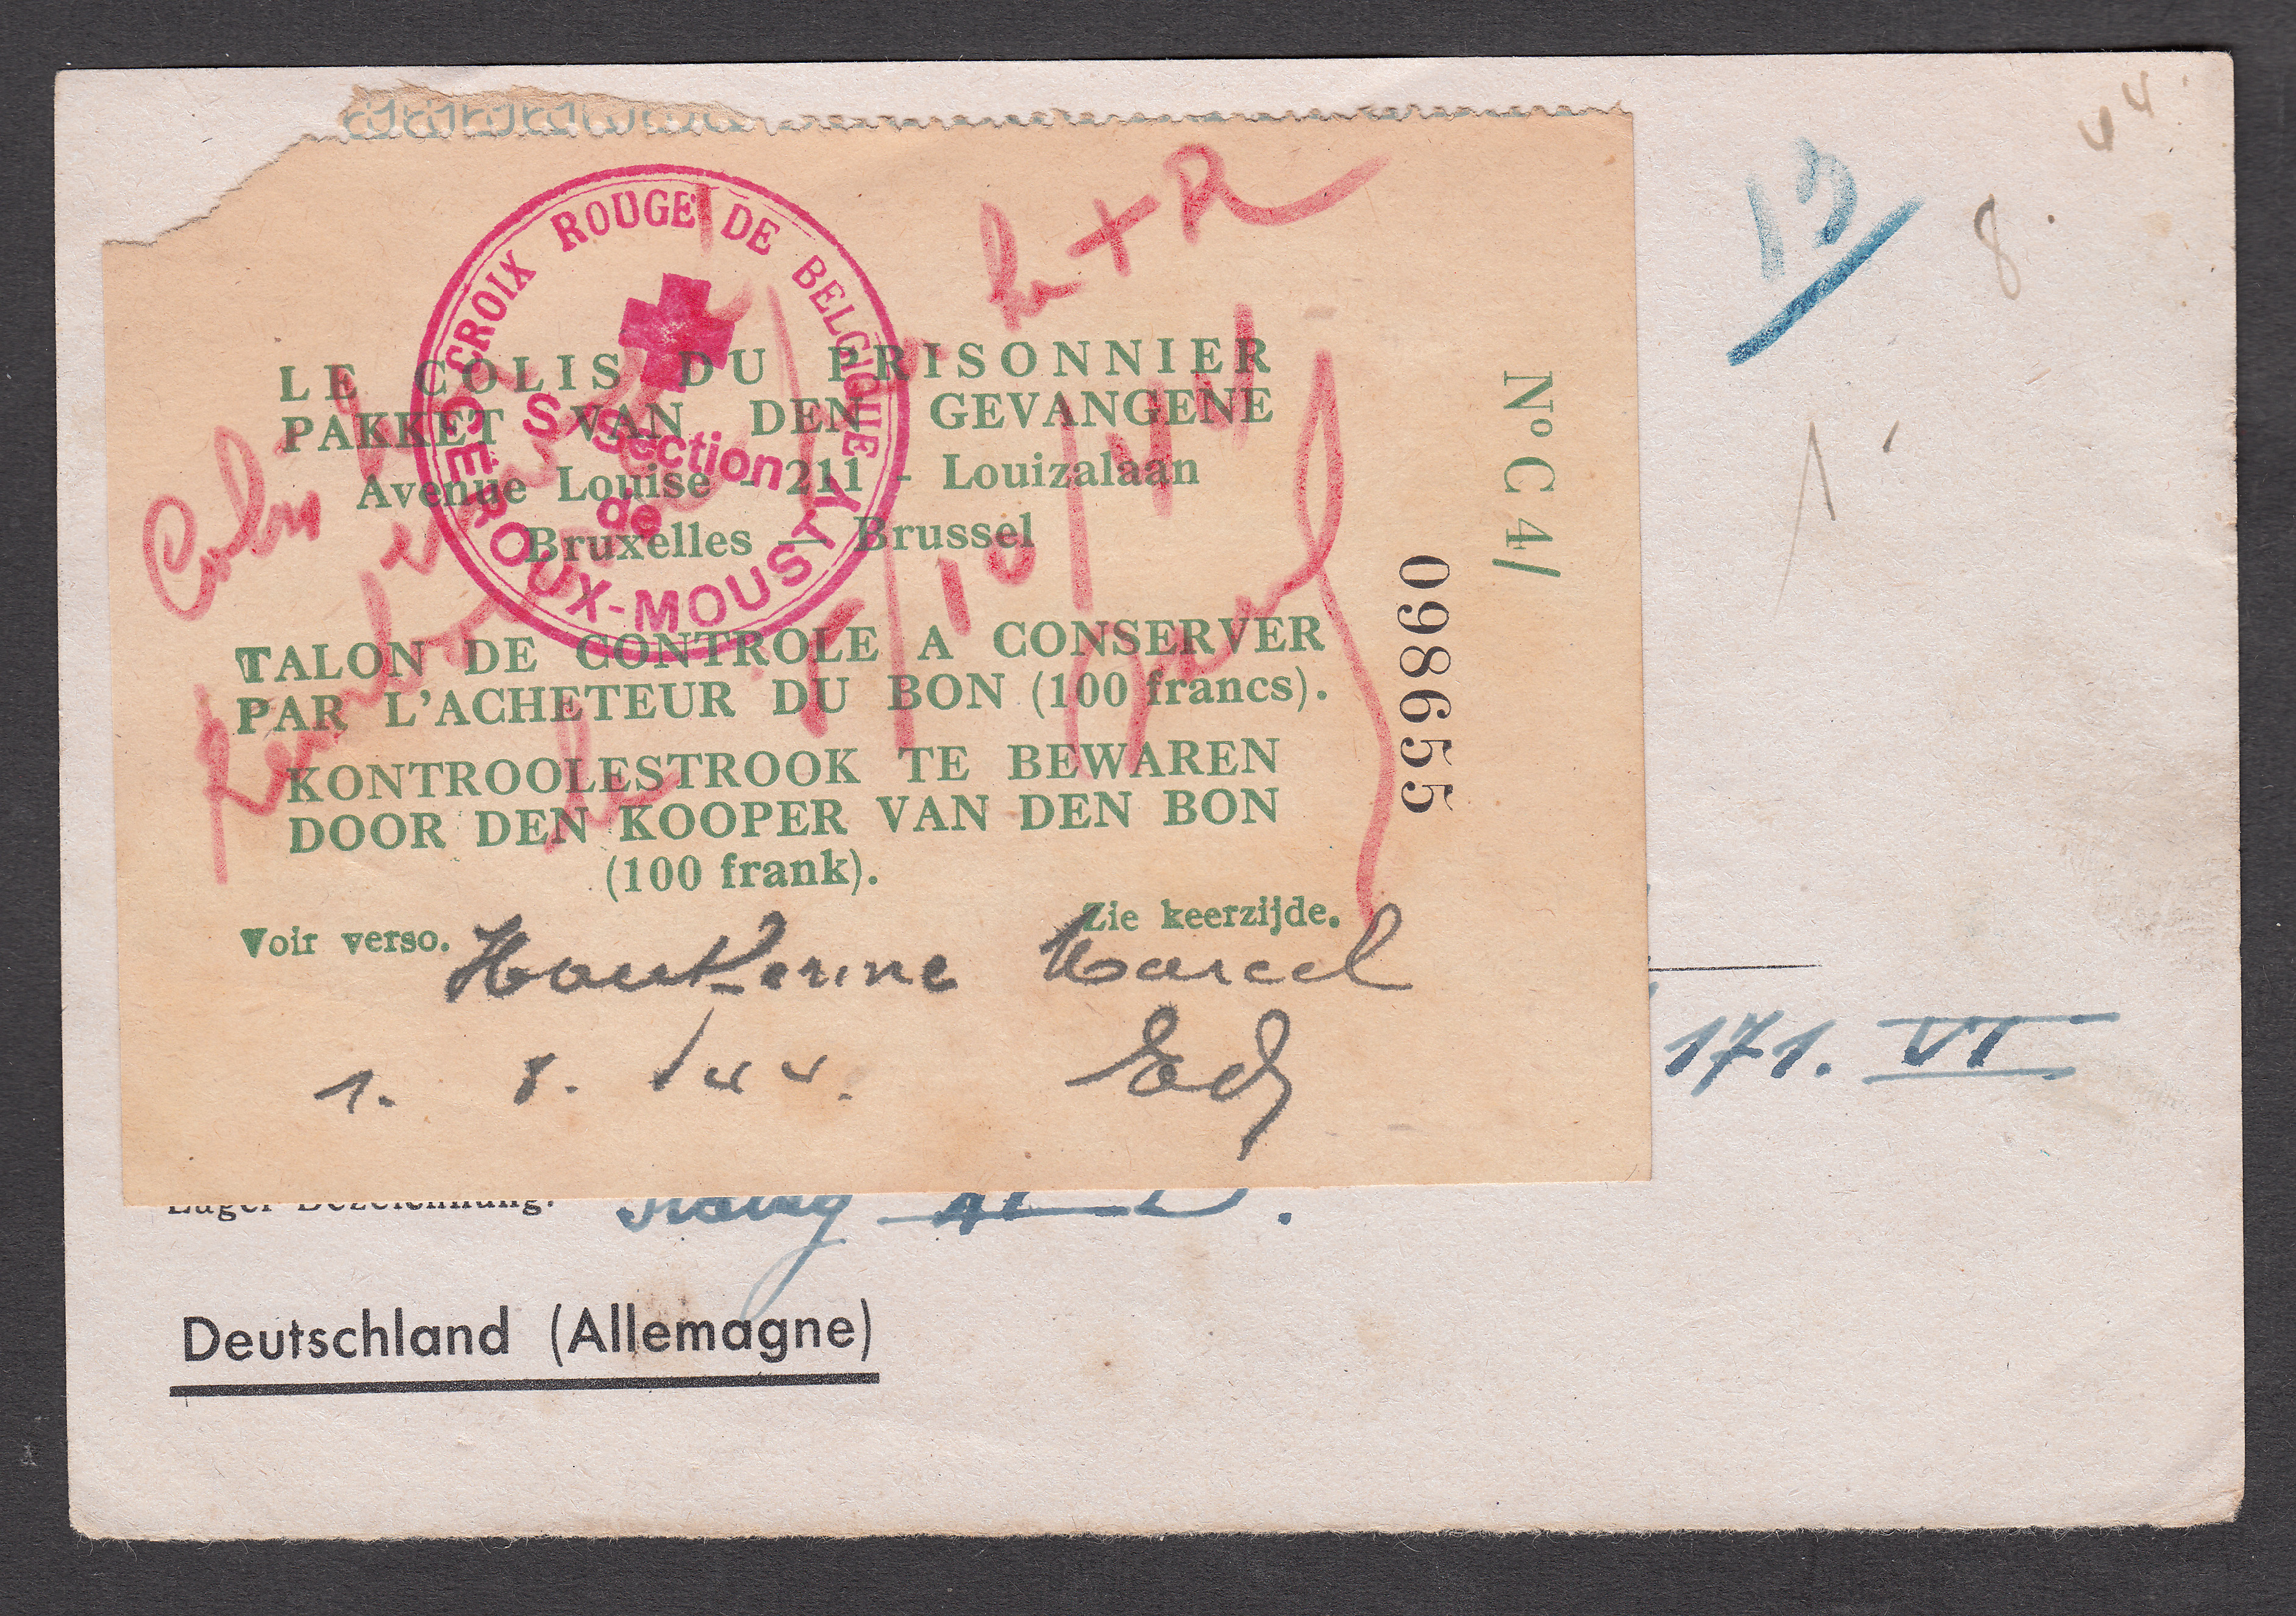 44
13
8.
CROIX ROUGE DE BELGIQUE
S/Section
de
CEROUX-MOUSTY
+ R
LE COLIS DU PRISONNIER
PAKKET VAN DEN GEVANGENE
Avenue Louise - 211 - Louizalaan
Bruxelles — Brussel
TALON DE CONTROLE A CONSERVER
PAR L'ACHETEUR DU BON (100 francs).
KONTROOLESTROOK TE BEWAREN
DOOR DEN KOOPER VAN DEN BON
(100 frank).
Voir verso. Zie keerzijde.
Marcel
1. 8. 44.
No C 4/
098655
171. VI
Lager-Bezeichnung:
Deutschland (Allemagne)